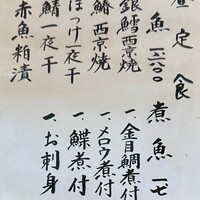 定食
魚 一二八〇
銀鱈西京焼
鰆西京焼
ほっけ一夜干
鯖一夜干
赤魚粕漬
煮魚 一七
一、金目鯛煮付
一、メロウ煮付
一、鰈煮付
一、お刺身